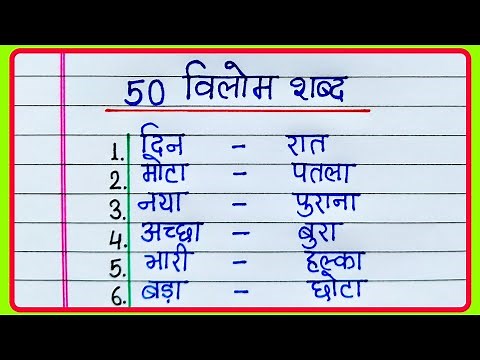 50 विलोम शब्द
1. दिन - रात
2. मोटा - पतला
3. नया - पुराना
4. अच्छा - बुरा
5. भारी - हल्का
6. बड़ा - छोटा